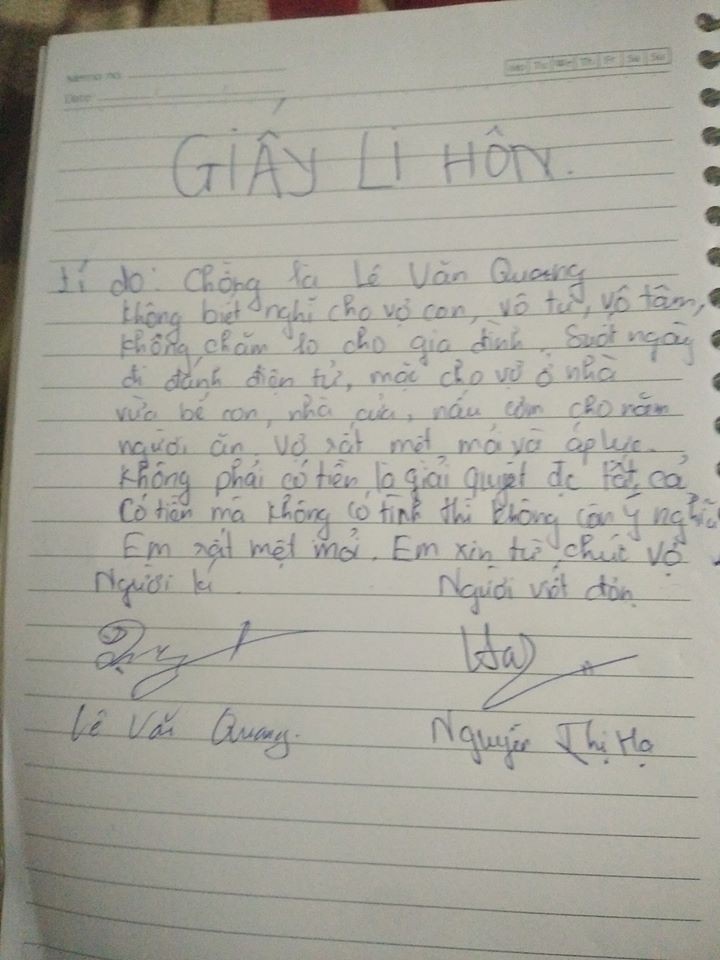 Memo no.
Date
Mo Tu We Th Fr Sa Su
GIẤY LI HÔN.
Lí do: Chồng là Lê Văn Quang
không biết nghĩ cho vợ con, vô tư, vô tâm,
không chăm lo cho gia đình. Suốt ngày
đi đánh điện tử, mặc cho vợ ở nhà
vừa bế con, nhà cửa, nấu cơm cho năm
người ăn. Vợ rất mệt mỏi và áp lực.
Không phải có tiền là giải quyết đc tất cả
Có tiền mà không có tình thì không còn ý nghĩa
Em rất mệt mỏi. Em xin từ chức vợ.
Người kí. Người viết đơn
Lê Văn Quang. Nguyễn Thị Hạ